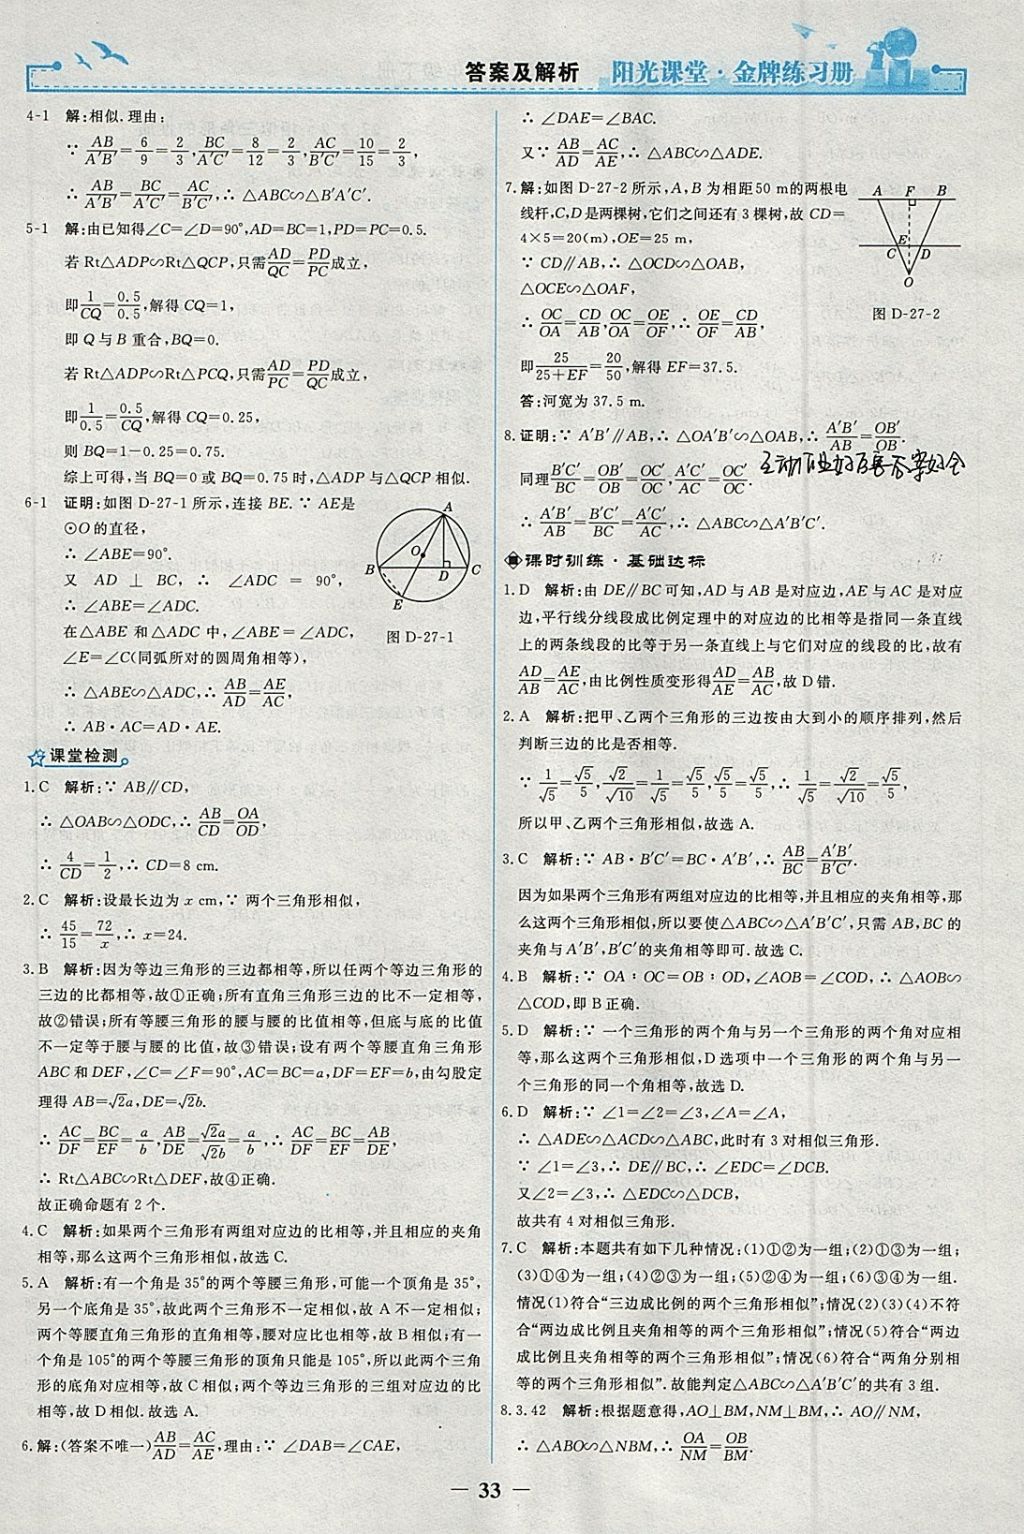 答案及解析 阳光课堂·金牌练习册
4-1 解:相似.理由:
∵ AB/A′B′=6/9=2/3,BC/A′C′=8/12=2/3,AC/B′C′=10/15=2/3,
∴ AB/A′B′=BC/A′C′=AC/B′C′,∴ △ABC∽△B′A′C′.
5-1 解:由已知得∠C=∠D=90°,AD=BC=1,PD=PC=0.5.
若 Rt△ADP∽Rt△QCP,只需AD/QC=PD/PC成立,
即1/CQ=0.5/0.5,解得 CQ=1,
即 Q 与 B 重合,BQ=0.
若 Rt△ADP∽Rt△PCQ,只需AD/PC=PD/QC成立,
即1/0.5=0.5/CQ,解得 CQ=0.25,
则 BQ=1-0.25=0.75.
综上可得,当 BQ=0 或 BQ=0.75 时,△ADP 与△QCP 相似.
6-1 证明:如图 D-27-1 所示,连接 BE.∵ AE是
⊙O 的直径,
∴ ∠ABE=90°.
又 AD⊥BC,∴ ∠ADC=90°,
∴ ∠ABE=∠ADC.
在△ABE 和△ADC 中,∠ABE=∠ADC,
∠E=∠C(同弧所对的圆周角相等),
∴ △ABE∽△ADC,∴ AB/AD=AE/AC,
∴ AB·AC=AD·AE.
A
O
B
D
C
E
图 D-27-1
课堂检测
1.C 解析:∵ AB∥CD,
∴ △OAB∽△ODC,∴ AB/CD=OA/OD,
∴ 4/CD=1/2,∴ CD=8 cm.
2.C 解析:设最长边为 x cm,∵ 两个三角形相似,
∴ 45/15=72/x,∴ x=24.
3.B 解析:因为等边三角形的三边都相等,所以任两个等边三角形的
三边的比都相等,故①正确;所有直角三角形三边的比不一定相等,
故②错误;所有等腰三角形的腰与腰的比值相等,但底与底的比值
不一定等于腰与腰的比值,故③错误;设有两个等腰直角三角形
ABC 和 DEF,∠C=∠F=90°,AC=BC=a,DF=EF=b,由勾股定
理得 AB=√2a,DE=√2b.
∴ AC/DF=BC/EF=a/b,AB/DE=√2a/√2b=a/b,∴ AC/DF=BC/EF=AB/DE,
∴ Rt△ABC∽Rt△DEF,故④正确.
故正确命题有 2 个.
4.C 解析:如果两个三角形有两组对应边的比相等,并且相应的夹角
相等,那么这两个三角形相似,故选 C.
5.A 解析:有一个角是 35°的两个等腰三角形,可能一个顶角是 35°,
另一个底角是 35°,故此两个三角形不一定相似,故 A 不一定相似;
两个等腰直角三角形的直角相等,腰对应比也相等,故 B 相似;有一
个角是 105°的两个等腰三角形的顶角只能是 105°,所以此两个三角
形的底角对应相等,故 C 相似;两个等边三角形的三组对应边的比
相等,故 D 相似.故选 A.
6.解:(答案不唯一)AB/AD=AC/AE,理由:∵ ∠DAB=∠CAE,
∴ ∠DAE=∠BAC.
又∵ AB/AD=AC/AE,∴ △ABC∽△ADE.
7.解:如图 D-27-2 所示,A,B 为相距50 m的两根电
线杆,C,D 是两棵树,它们之间还有 3 棵树,故 CD=
4×5=20(m),OE=25 m,
∵ CD∥AB,∴ △OCD∽△OAB,
△OCE∽△OAF,
∴ OC/OA=CD/AB,OC/OA=OE/OF,∴ OE/OF=CD/AB,
即25/(25+EF)=20/50,解得 EF=37.5.
答:河宽为 37.5 m.
A F B
C E D
O
图 D-27-2
8.证明:∵ A′B′∥AB,∴ △OA′B′∽△OAB,∴ A′B′/AB=OB′/OB.
同理B′C′/BC=OB′/OB=OC′/OC,A′C′/AC=OC′/OC.
∴ A′B′/AB=B′C′/BC=A′C′/AC,∴ △ABC∽△A′B′C′.
课时训练·基础达标
1.D 解析:由 DE∥BC可知,AD 与 AB 是对应边,AE 与 AC 是对应
边,平行线分线段成比例定理中的对应边的比相等是指同一条直线
上的两条线段的比等于另一条直线上与它们对应的线段的比,故有
AD/AB=AE/AC,由比例性质变形得AD/AE=AB/AC,故 D 错.
2.A 解析:把甲、乙两个三角形的三边按由大到小的顺序排列,然后
判断三边的比是否相等.
∵ 1/√5=√5/5,√2/√10=√5/5,√5/5=√5/5,∴ 1/√5=√2/√10=√5/5,
所以甲、乙两个三角形相似,故选 A.
3.C 解析:∵ AB·B′C′=BC·A′B′,∴ AB/BC=A′B′/B′C′.
因为如果两个三角形有两组对应边的比相等,并且相应的夹角相等,那
么这两个三角形相似,所以要使△ABC∽△A′B′C′,只需 AB,BC 的
夹角与 A′B′,B′C′的夹角相等即可.故选 C.
4.B 解析:∵ OA∶OC=OB∶OD,∠AOB=∠COD,∴ △AOB∽
△COD,即 B 正确.
5.D 解析:∵ 一个三角形的两个角与另一个三角形的两个角对应相
等,那么这两个三角形相似,D 选项中一个三角形的两个角与另一
个三角形的同一个角相等,故选 D.
6.D 解析:∵ ∠1=∠2=∠3,∠A=∠A,
∴ △ADE∽△ACD∽△ABC,此时有 3 对相似三角形.
∵ ∠1=∠3,∴ DE∥BC,∴ ∠EDC=∠DCB.
又∠2=∠3,∴ △EDC∽△DCB,
故共有 4 对相似三角形.
7.C 解析:本题共有如下几种情况:(1)①②为一组;(2)①③为一组;
(3)①④为一组;(4)②③为一组;(5)②④为一组;(6)③④为一组.
情况(1)符合“三边成比例的两个三角形相似”;情况(2)(3)(4)不符
合“两边成比例且夹角相等的两个三角形相似”;情况(5)符合“两边
成比例且夹角相等的两个三角形相似”;情况(6)符合“两角分别相
等的两个三角形相似”.故能判定△ABC∽△A′B′C′的共有 3 组.
8.3.42 解析:根据题意得,AO⊥BM,NM⊥BM,∴ AO∥NM,
∴ △ABO∽△NBM,∴ OA/NM=OB/BM.
— 33 —